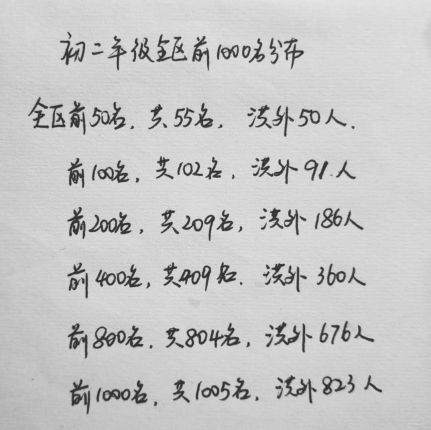 初二年级全区前1000名分布
全区前50名，共55名，洪外50人.
前100名，共102名，洪外91人
前200名，共209名，洪外186人
前400名，共409名.洪外360人
前800名.共804名，洪外676人
前1000名，共1005名，洪外823人